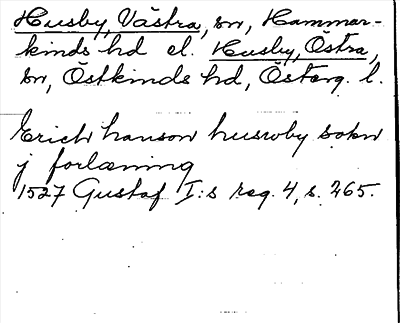 Husby, Västra, sn, Hammar-
kinds hd el. Husby, Östra,
sn, Östkinds hd, Österg. l.
Erich hanson husroby sokn
j forlæning
1527 Gustaf I:s reg. 4, s. 265.